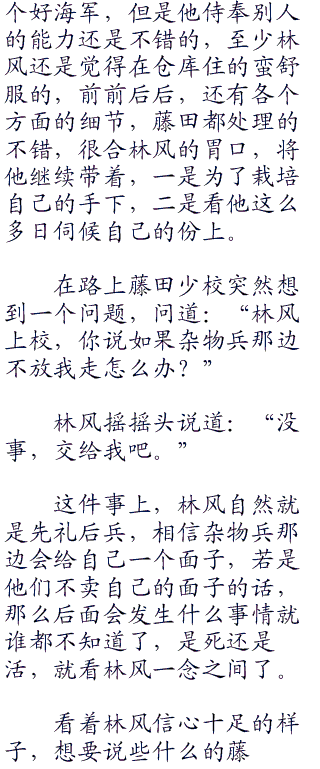 个好海军，但是他侍奉别人
的能力还是不错的，至少林
风还是觉得在仓库住的蛮舒
服的，前前后后，还有各个
方面的细节，藤田都处理的
不错，很合林风的胃口，将
他继续带着，一是为了栽培
自己的手下，二是看他这么
多日伺候自己的份上。
在路上藤田少校突然想
到一个问题，问道：“林风
上校，你说如果杂物兵那边
不放我走怎么办？”
林风摇摇头说道：“没
事，交给我吧。”
这件事上，林风自然就
是先礼后兵，相信杂物兵那
边会给自己一个面子，若是
他们不卖自己的面子的话，
那么后面会发生什么事情就
谁都不知道了，是死还是
活，就看林风一念之间了。
看着林风信心十足的样
子，想要说些什么的藤